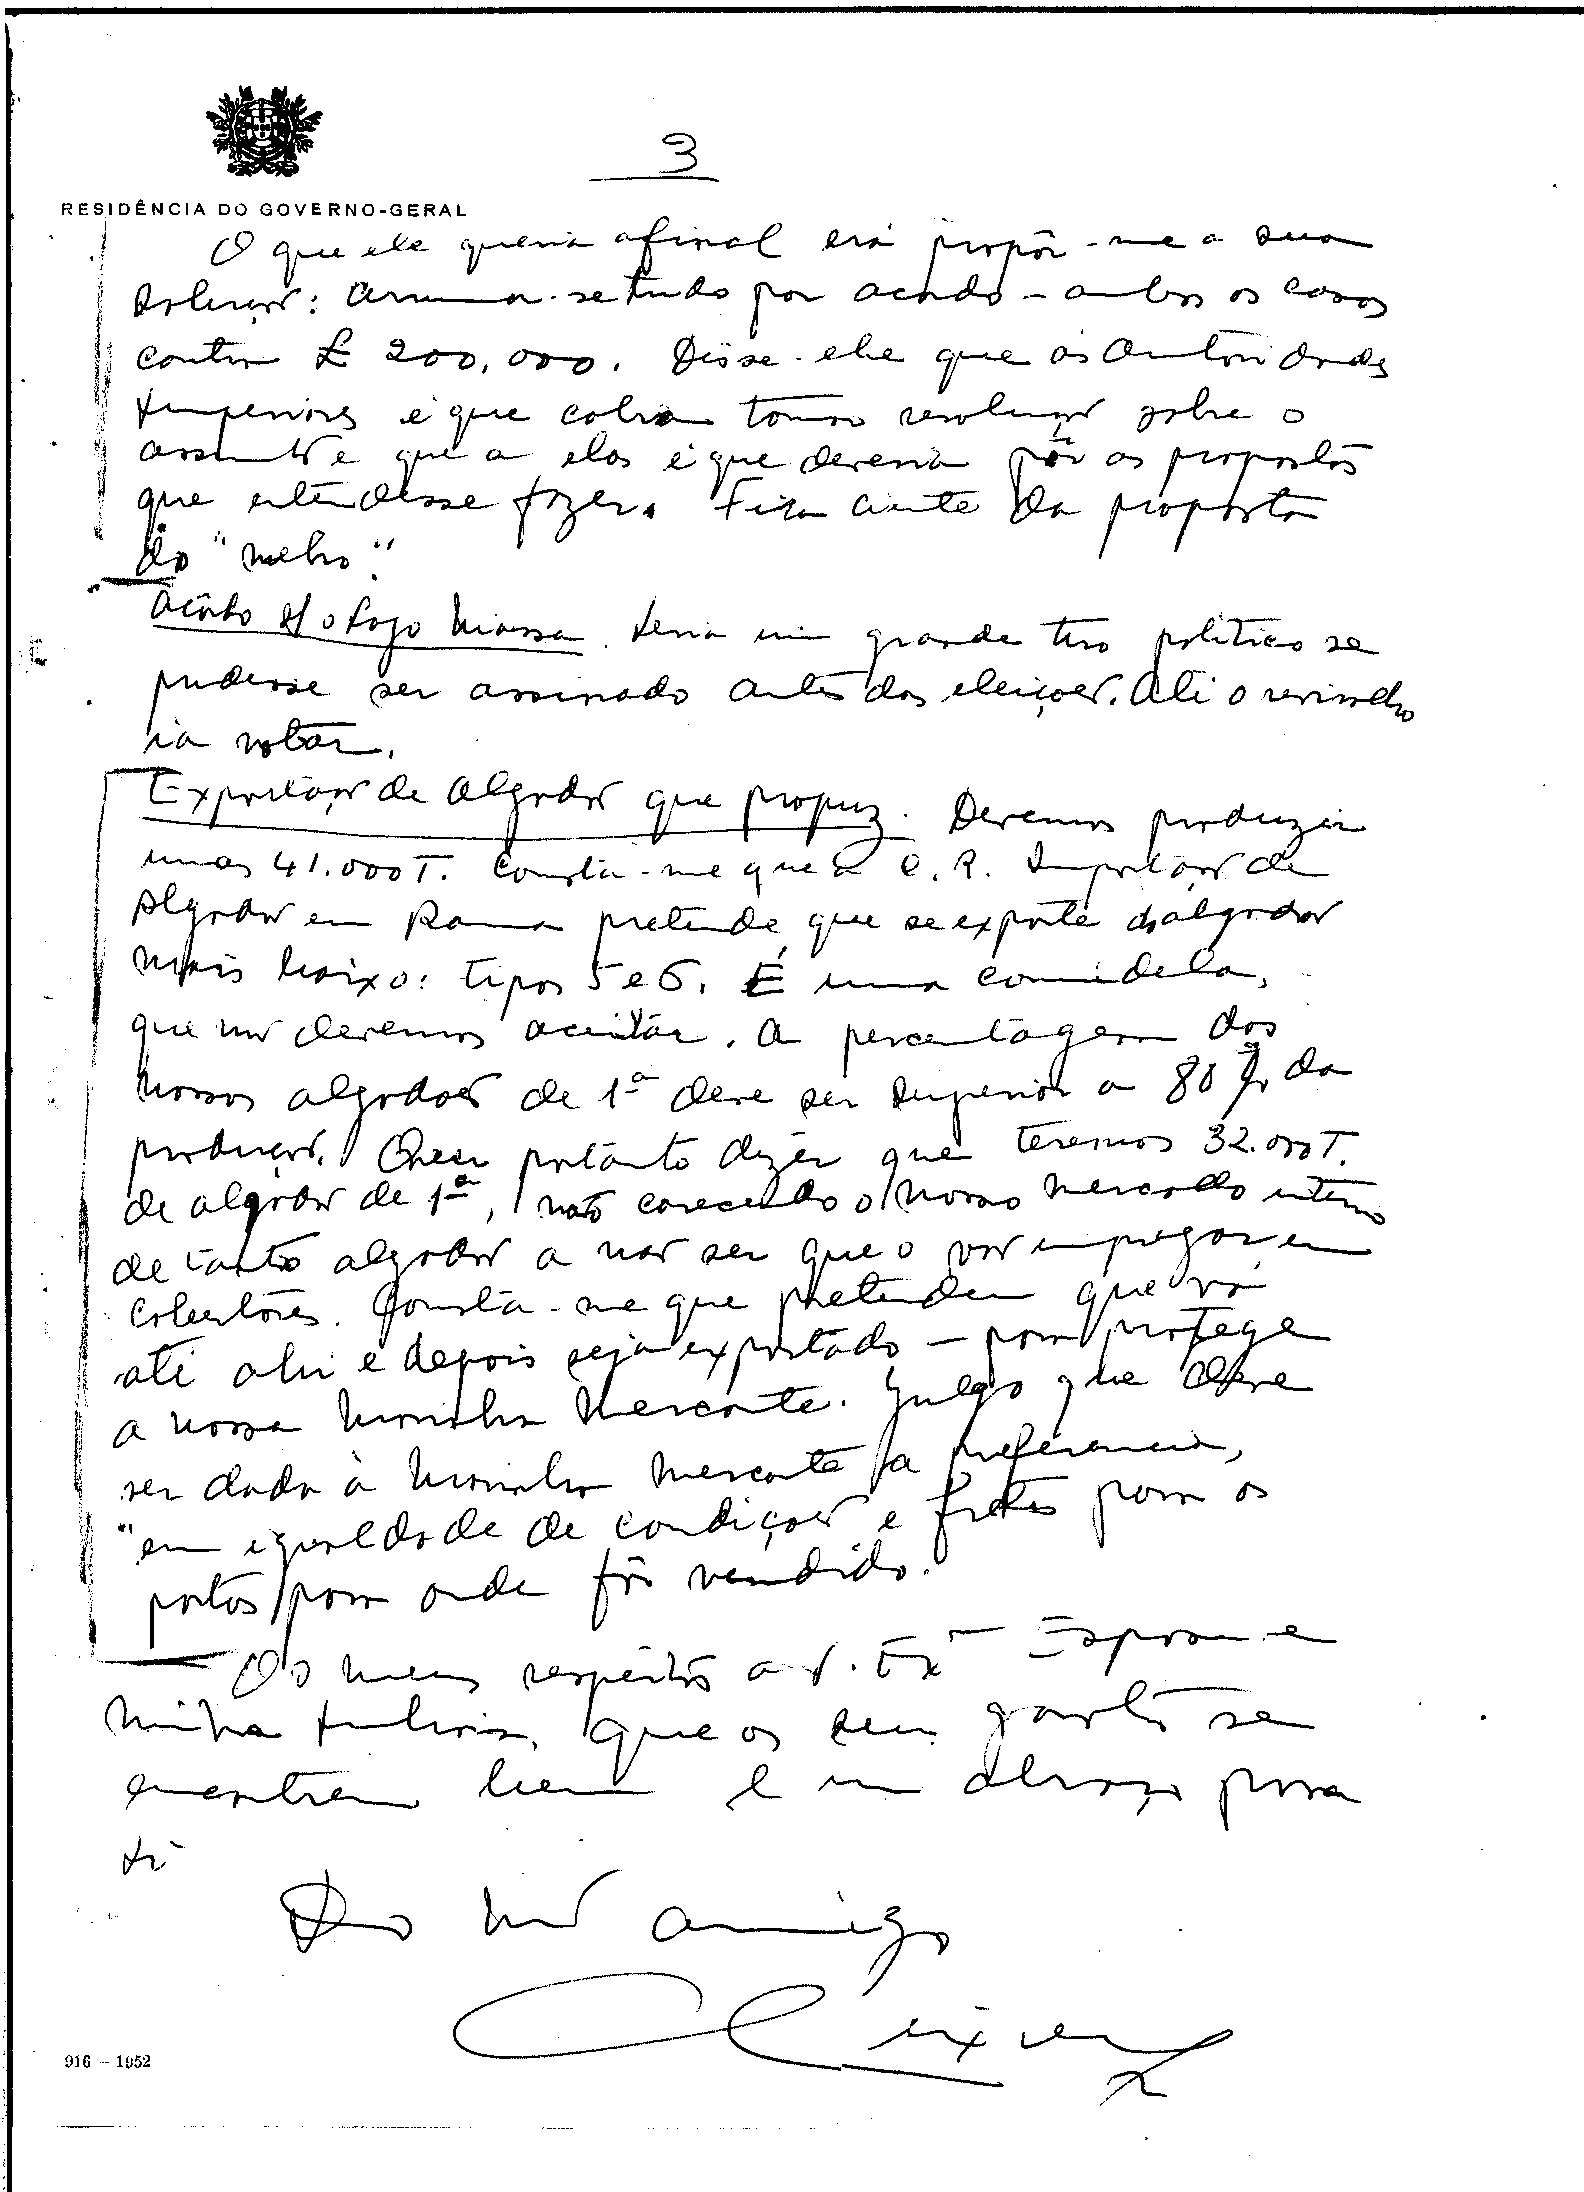 3
RESIDÊNCIA DO GOVERNO-GERAL
O que ele queria afinal era propôr-me a sua
solução: arruma-se tudo por acordo - ambos os casos
contra £ 200.000. Disse-lhe que às Autoridades
Superiores é que cabia tomar resolução sobre o
assunto e que a elas é que deveria pôr as propostas
que entendesse fazer. Fica ciente da proposta
do "melro".
Acôrdo s/ o Lago Niassa. Seria um grande tiro político se
pudesse ser assinado antes das eleições. Até o
ia votar.
Exportação de Algodão que propuz. Devemos produzir
umas 41.000 T. Consta-me que a C. R. Importação de
Algodão em Rama pretende que se exporte o algodão
mais baixo: tipos 5 e 6. É uma comidela,
que não devemos aceitar. A percentagem dos
nossos algodões de 1ª deve ser superior a 80 % da
produção. Quer portanto dizer que teremos 32.000 T.
de algodão de 1ª, não carecendo o nosso mercado interno
de tanto algodão a não ser que o vão empregar em
cobertores. Consta-me que pretendem que vá
até ahi e depois seja exportado - para protege
a nossa Marinha Mercante. Julgo que deve
ser dada à Marinha Mercante a preferencia,
"em igualdade de condições e fretes para os
portos para onde fôr vendido."
Os meus respeitos a V. Exª Esposa e
minha Senhora, que os seus garotos se
encontrem bem e um abraço para
ti
Do teu amigo
916 - 1952